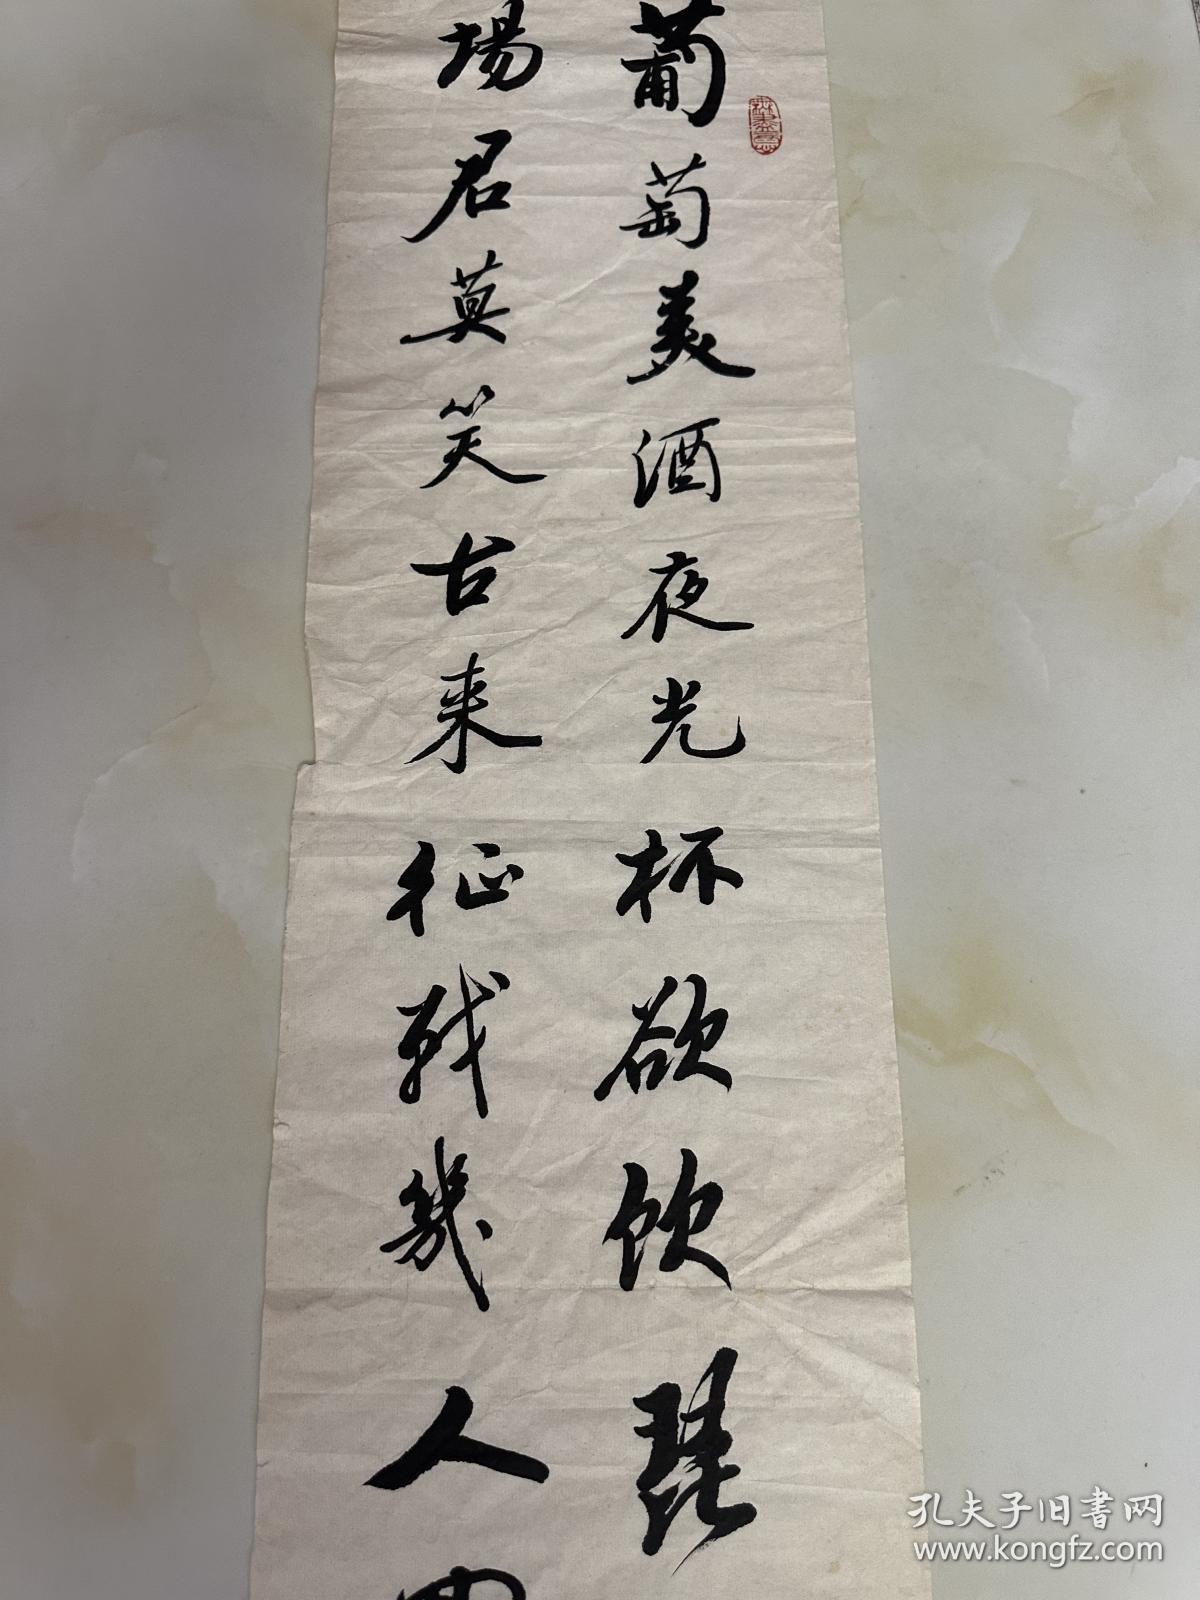 葡萄美酒夜光杯欲饮琵
場君莫笑古来征戰幾人
孔夫子旧书网
www.kongfz.com